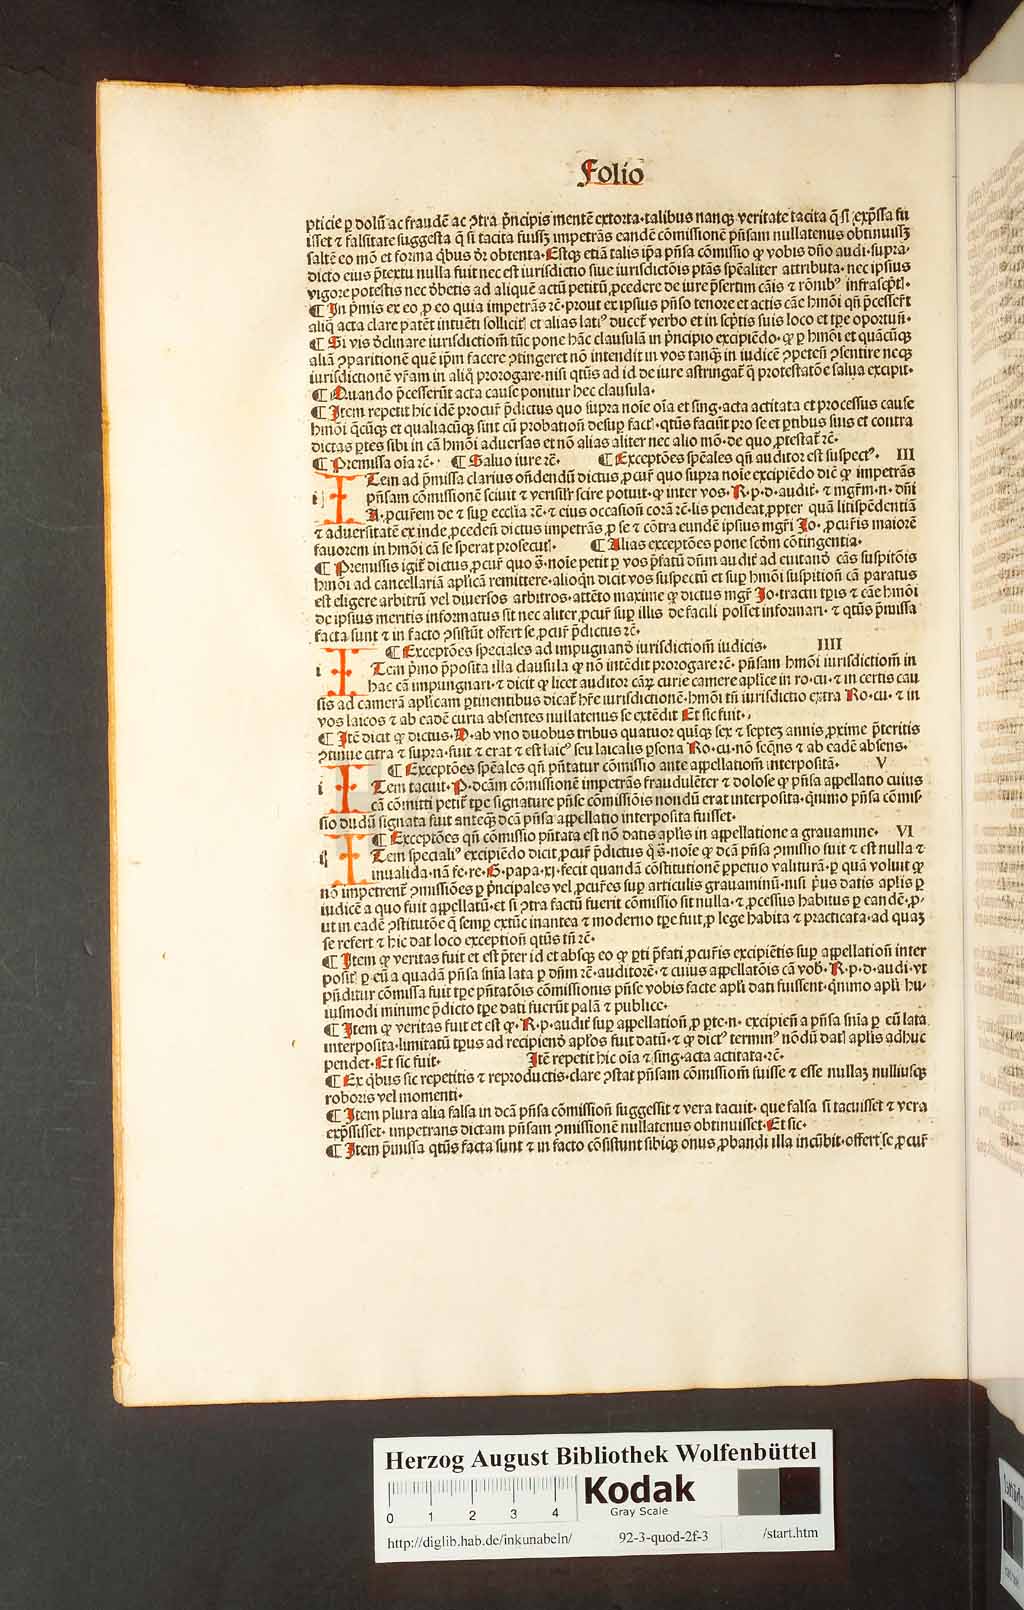 Folio
pticie ꝑ dolū ac fraudē ac ꝯtra p̄ncipis mentē extorta·talibus nanqꝫ veritate tacita q̄ si exp̄ssa fu
isset ⁊ falsitate suggesta q̄ si tacita fuissꝫ impetrās eandē cōmissionē pn̄sam nullatenus obtinuissꝫ
saltē eo mō et forma q̄bus dr̄ obtenta·Estqꝫ etiā talis ip̄a pn̄sa cōmissio ꝙ vobis dn̄o audi·supra·
dicto eius p̄textu nulla fuit nec est iurisdictio siue iurisdictōis ptās spēaliter attributa·nec ipsius
vigore potestis nec d̄betis ad aliquē actū petitū ꝓcedere de iure p̄sertim cāis ⁊ rōnibꝰ infrascp̄tꝭ·
¶ In p̄mis ex eo ꝓ eo quia impetrās ꝛc̄·prout ex ipsius pn̄so tenore et actis cāe hmōi qn̄ p̄cesser̄t
aliq̄ acta clare patēt intuēti sollicitꝭ et alias latiꝰ ducet̄ verbo et in scp̄tis suis loco et tꝑe oportun̄·
¶ Si vis d̄clinare iurisdictiom̄ tūc pone hāc clausulā in p̄ncipio excipiēdo·ꝙ ꝑ hmōi et quācūqꝫ
aliā ꝯparitionē quē ip̄m facere ꝯtingeret nō intendit in vos tanqꝫ in iudicē ꝯpeten̄ ꝯsentire neqꝫ
iurisdictionē vr̄am in aliq̄ prorogare·nisi qtūs ad id de iure astringat̄ q̄ protestatōe salua excipit·
¶ Quando p̄cesserūt acta cause ponitur hec clausula·
¶ Item repetit hic idē procur̄ p̄dictus quo supra noīe oīa et sing·acta actitata et processus cause
hmōi q̄cūqꝫ et qualiacūqꝫ sint cū probation̄ desuꝑ factꝭ·qtūs faciūt pro se et ꝑtibus suis et contra
dictas ꝑtes sibi in cā hmōi aduersas et nō alias aliter nec alio mō·de quo ꝓtestat̄ ꝛc̄·
¶ Premissa oīa ꝛc̄· ¶ Saluo iure ꝛc̄· ¶ Exceptōes spēales qn̄ auditor est suspectꝰ· III
i ITem ad p̄missa clarius on̄dendū dictus ꝓcur̄ quo supra noīe excipiēdo dic̄ ꝙ impetrās
pn̄sam cōmissionē sciuit ⁊ verisilꝛ scire potuit·ꝙ inter vos·R·p·d·audit̄·⁊ mgr̄m·n·dn̄i
A·ꝓcur̄em de ⁊ suꝑ ecclīa ꝛc̄·⁊ eius occasion̄ corā ꝛc̄·lis pendeat ꝓpter quā litispēdentiā
⁊ aduersitatē ex inde ꝓceden̄ dictus impetrās ꝓ se ⁊ cōtra eundē ipsius mgr̄i Jo·ꝓcur̄is maiorē
fauorem in hmōi cā se sperat prosecutꝭ· ¶ Alias exceptōes pone scd̄m cōtingentia·
¶ Premissis igit̄ dictus ꝓcur̄ quo s̄·noīe petit ꝑ vos p̄fatū dn̄m audit̄ ad euitand̄ cās suspitōis
hmōi ad cancellariā aplicā remittere·alioqn̄ dicit vos suspectū et suꝑ hmōi suspition̄ cā paratus
est eligere arbitrū vel diuersos arbitros·attēto maxime ꝙ dictus mgr̄ Jo·tractu tꝑis ⁊ cāe hmōi
de ipsius meritis informatus sit nec aliter ꝓcur̄ suꝑ illis de facili posset informari·⁊ qtūs p̄missa
facta sunt ⁊ in facto ꝯsistūt offert se ꝓcur̄ p̄dictus ꝛc̄·
¶ Exceptōes speciales ad impugnand̄ iurisdictiom̄ iudicis· IIII
i ITem p̄mo p̄posita illa clausula ꝙ nō intēdit prorogare ꝛc̄·pn̄sam hmōi iurisdictiom̄ in
hac cā impungnari·⁊ dicit ꝙ licet auditor cāꝝ curie camere aplice in ro·cu·⁊ in certis cau
sis ad camerā aplicam ꝑtinentibus dicat̄ hr̄e iurisdictionē·hmōi tn̄ iurisdictio extra Ro·cu·⁊ in
vos laicos ⁊ ab eadē curia absentes nullatenus se extēdit Et sic fuit·
¶ Itē dicit ꝙ dictus·D·ab vno duobus tribus quatuor quīqꝫ sex ⁊ septeꝫ annis ꝓxime p̄teritis
ꝯtinue citra ⁊ supra·fuit ⁊ erat ⁊ est laicꝰ seu laicalis ꝑsona Ro·cu·nō seqn̄s ⁊ ab eadē absens·
¶ Exceptōes spēales qn̄ pn̄tatur cōmissio ante appellatiom̄ interpositā· V
i ITem tacuit·P·dcām cōmissionē impetrās fraudulēter ⁊ dolose ꝙ pn̄sa appellatio cuius
cā cōmitti petit̄ tꝑe signature pn̄se cōmissiōis nondū erat interposita·qīnimo pn̄sa cōmis·
sio dudū signata fuit anteqꝫ dcā pn̄sa appellatio interposita fuisset·
¶ Exceptōes qn̄ cōmissio pn̄tata est nō datis aplis in appellatione a grauamine· VI
ITem specialiꝰ excipiēdo dicit ꝓcur̄ p̄dictus q̊ s̄·noīe ꝙ dcā pn̄sa ꝯmissio fuit ⁊ est nulla ⁊
inualida·nā fe·re·S·papa·xj·fecit quandā cōstitutionē ꝑpetuo valiturā·ꝑ quā voluit ꝙ
nō impetrent̄ ꝯmissiōes ꝑ p̄ncipales vel ꝓcur̄es suꝑ articulis grauaminū·nisi p̄us datis aplis ꝑ
iudicē a quo fuit appellatū·et si ꝯtra factū fuerit cōmissio sit nulla·⁊ ꝓcessus habitus ꝑ eandē·ꝓ·
ut in eadē ꝯstitutōe q̄ semꝑ extūc inantea ⁊ moderno tꝑe fuit ꝓ lege habita ⁊ practicata·ad quaꝫ
se refert ⁊ hic dat loco exception̄ qtūs tn̄ ꝛc̄·
¶ Item ꝙ veritas fuit et est p̄ter id et absqꝫ eo ꝙ ꝑti p̄fati ꝓcur̄is excipiētis suꝑ appellation̄ inter
positꝭ ꝑ eū a quadā pn̄sa sn̄ia lata ꝑ dn̄m ꝛc̄·auditorē·⁊ cuius appellatōis cā vob̄·R·p·d·audi·vt
pn̄ditur cōmissa fuit tꝑe pn̄tatōis cōmissionis pn̄se vobis facte apli dati fuissent·qīnimo apli hu·
iusmodi minime p̄dicto tꝑe dati fuerūt palā ⁊ publice·
¶ Item ꝙ veritas fuit et est ꝙ·R·p·audit̄ suꝑ appellation̄ ꝓ ꝑte·n·excipien̄ a pn̄sa sn̄ia ꝑ eū lata
interposita·limitatū tꝑus ad recipiend̄ aplos fuit datū·⁊ ꝙ dictꝰ terminꝰ nōdū datꝭ aplis adhuc
pendet·Et sic fuit· Itē repetit hic oīa ⁊ sing·acta actitata·ꝛc̄·
¶ Ex q̄bus sic repetitis ⁊ reproductis·clare ꝯstat pn̄sam cōmissiom̄ fuisse ⁊ esse nullaꝫ nulliusqꝫ
roboris vel momenti·
¶ Item plura alia falsa in dcā pn̄sa cōmission̄ suggessit ⁊ vera tacuit·que falsa si tacuisset ⁊ vera
exp̄ssisset·impetrans dictam pn̄sam ꝯmissionē nullatenus obtinuisset·Et sic·
¶ Item p̄missa qtūs facta sunt ⁊ in facto cōsistunt sibiqꝫ onus ꝓbandi illa incūbit·offert se ꝓcur̄
Herzog August Bibliothek Wolfenbüttel
0 1 2 3 4
Kodak
Gray Scale
http://diglib.hab.de/inkunabeln/ 92-3-quod-2f-3 /start.htm